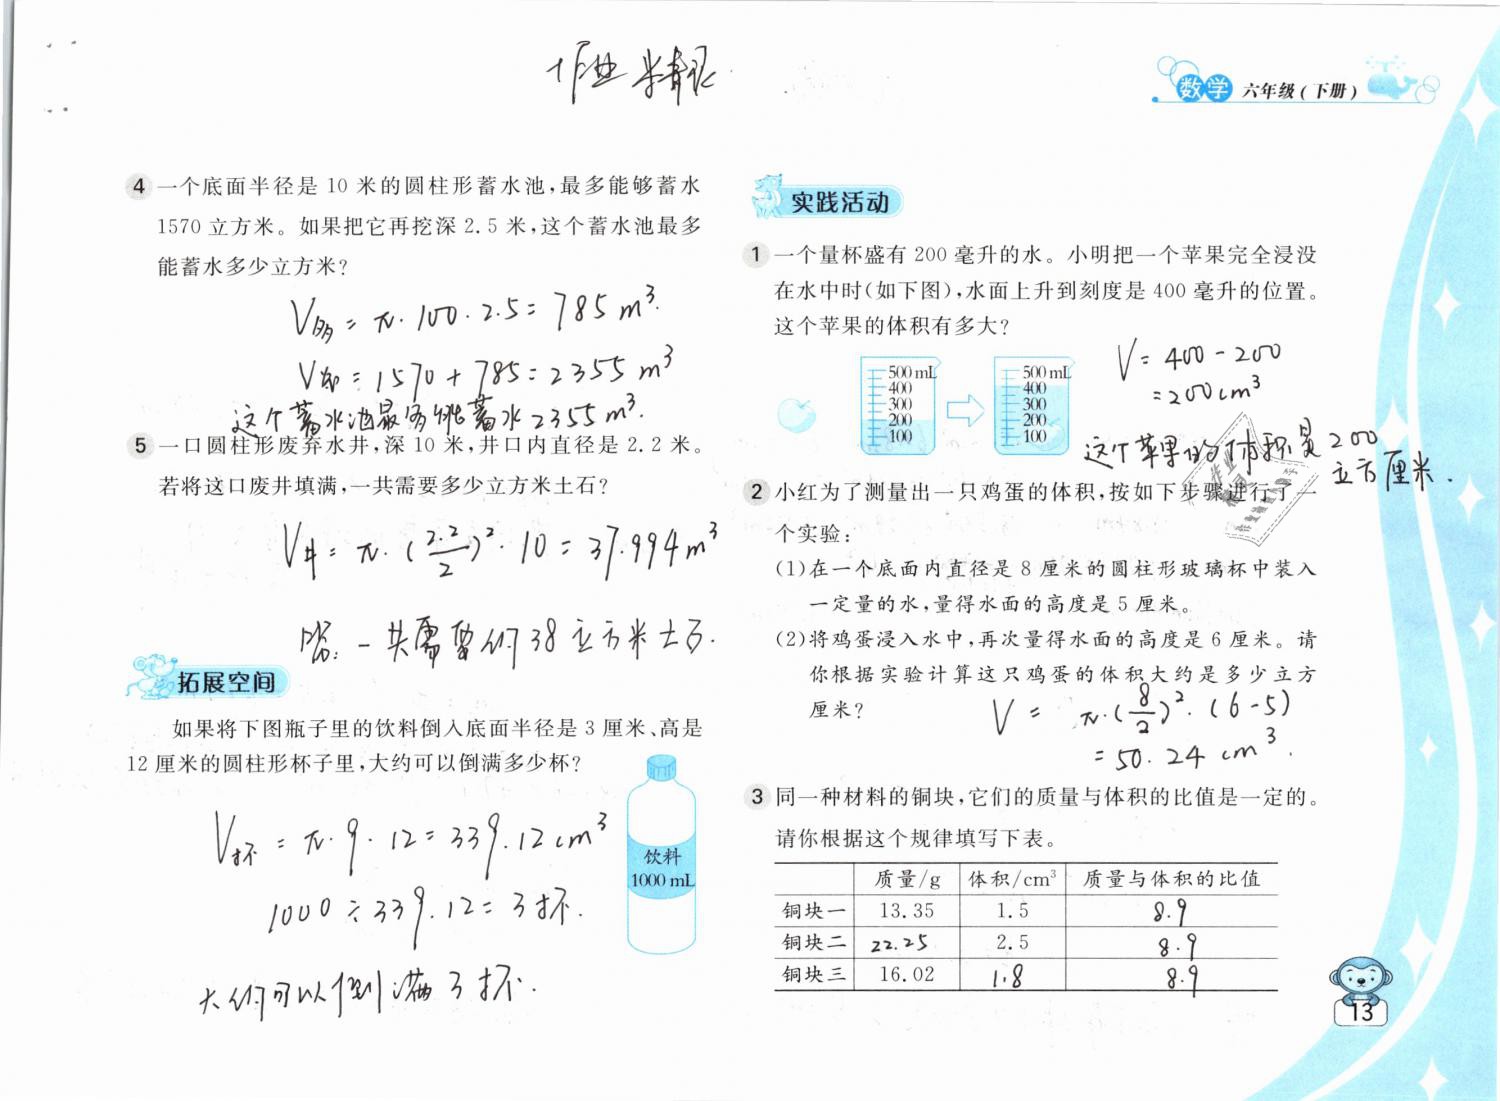 作业精灵
数学 六年级(下册)
4 一个底面半径是 10 米的圆柱形蓄水池,最多能够蓄水
1570 立方米。如果把它再挖深 2.5 米,这个蓄水池最多
能蓄水多少立方米?
V多 = π·100·2.5 = 785 m³.
= 1570 + 785 = 2355 m³
这个蓄水池最多能蓄水 2355 m³.
5 一口圆柱形废弃水井,深 10 米,井口内直径是 2.2 米。
若将这口废井填满,一共需要多少立方米土石?
V井 = π·(2.2/2)²·10 = 37.994 m³
答:一共需要约 38 立方米土石.
拓展空间
如果将下图瓶子里的饮料倒入底面半径是 3 厘米、高是
12 厘米的圆柱形杯子里,大约可以倒满多少杯?
V杯 = π·9·12 = 339.12 cm³
1000 ÷ 339.12 = 3 杯.
大约可以倒满 3 杯.
饮料
1000 mL
实践活动
1 一个量杯盛有 200 毫升的水。小明把一个苹果完全浸没
在水中时(如下图),水面上升到刻度是 400 毫升的位置。
这个苹果的体积有多大?
500 mL
400
300
200
100
500 mL
400
300
200
100
V = 400 - 200
= 200 cm³
这个苹果的体积是 200
立方厘米.
2 小红为了测量出一只鸡蛋的体积,按如下步骤进行了一
个实验:
(1)在一个底面内直径是 8 厘米的圆柱形玻璃杯中装入
一定量的水,量得水面的高度是 5 厘米。
(2)将鸡蛋浸入水中,再次量得水面的高度是 6 厘米。请
你根据实验计算这只鸡蛋的体积大约是多少立方
厘米?
V = π·(8/2)²·(6-5)
= 50.24 cm³.
3 同一种材料的铜块,它们的质量与体积的比值是一定的。
请你根据这个规律填写下表。
质量/g 体积/cm³ 质量与体积的比值
铜块一 13.35 1.5 8.9
铜块二 22.25 2.5 8.9
铜块三 16.02 1.8 8.9
13